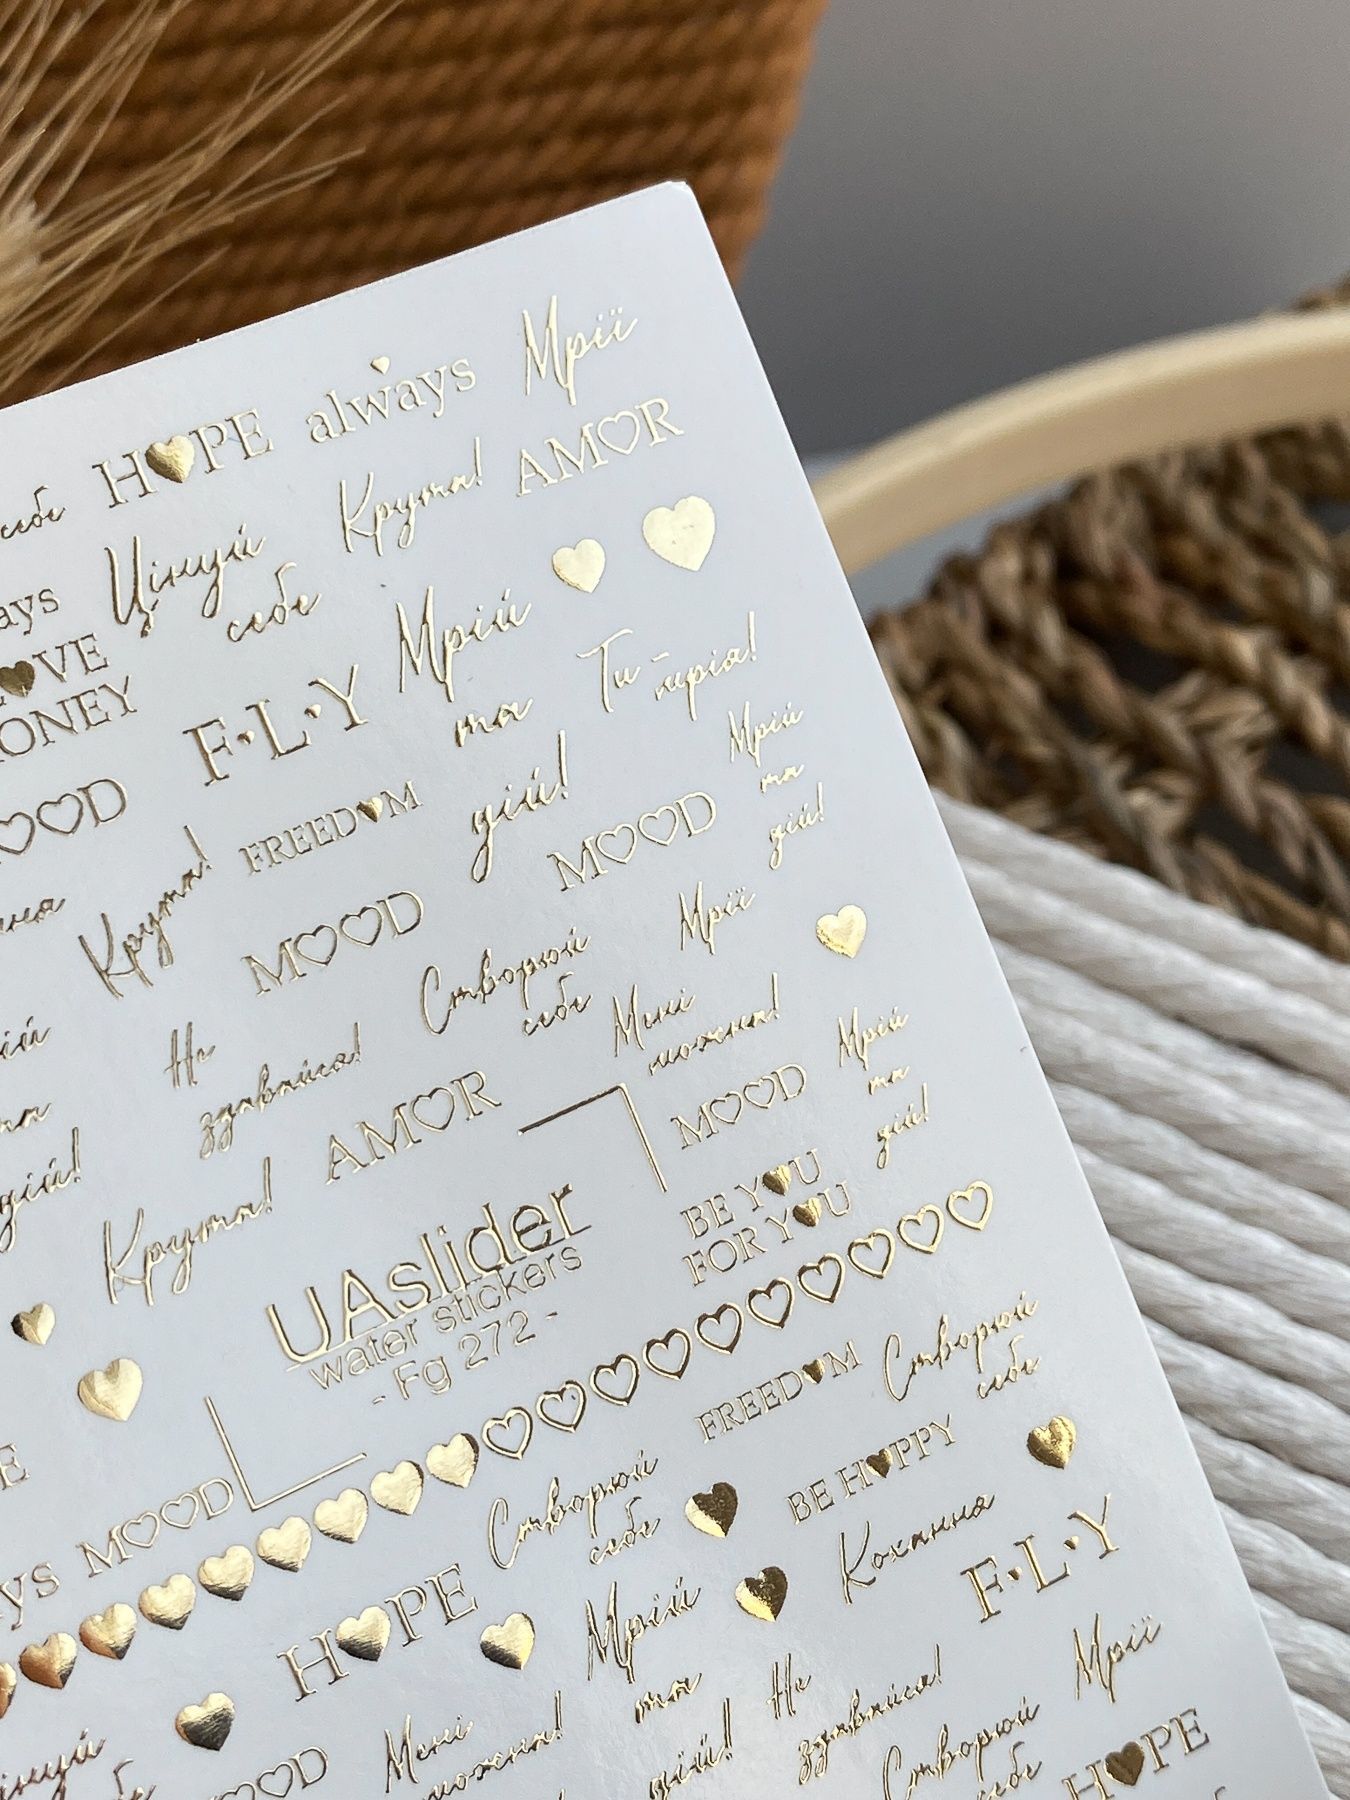 HOPE always Мрії
себе
Цінуй
себе
Крута!
AMOR
LOVE
FLY
Мрій
та
дій!
Ти -
мрія!
MOOD
FREEDOM
Крута!
MOOD
MOOD
Мрій
та
дій!
Створюй
себе
Мрії
Не
здавайся!
Мені
можна!
AMOR
MOOD
Мрій
та
дій!
дій!
Крута!
UAslider
water stickers
- Fg 272 -
BE YOU
FOR YOU
FREEDOM
Створюй
себе
MOOD
Створюй
себе
BE HAPPY
HOPE
Кохання
FLY
Мрій
та
дій!
Не
здавайся!
Мрії
Мені
можна!
Створюй
себе
HOPE